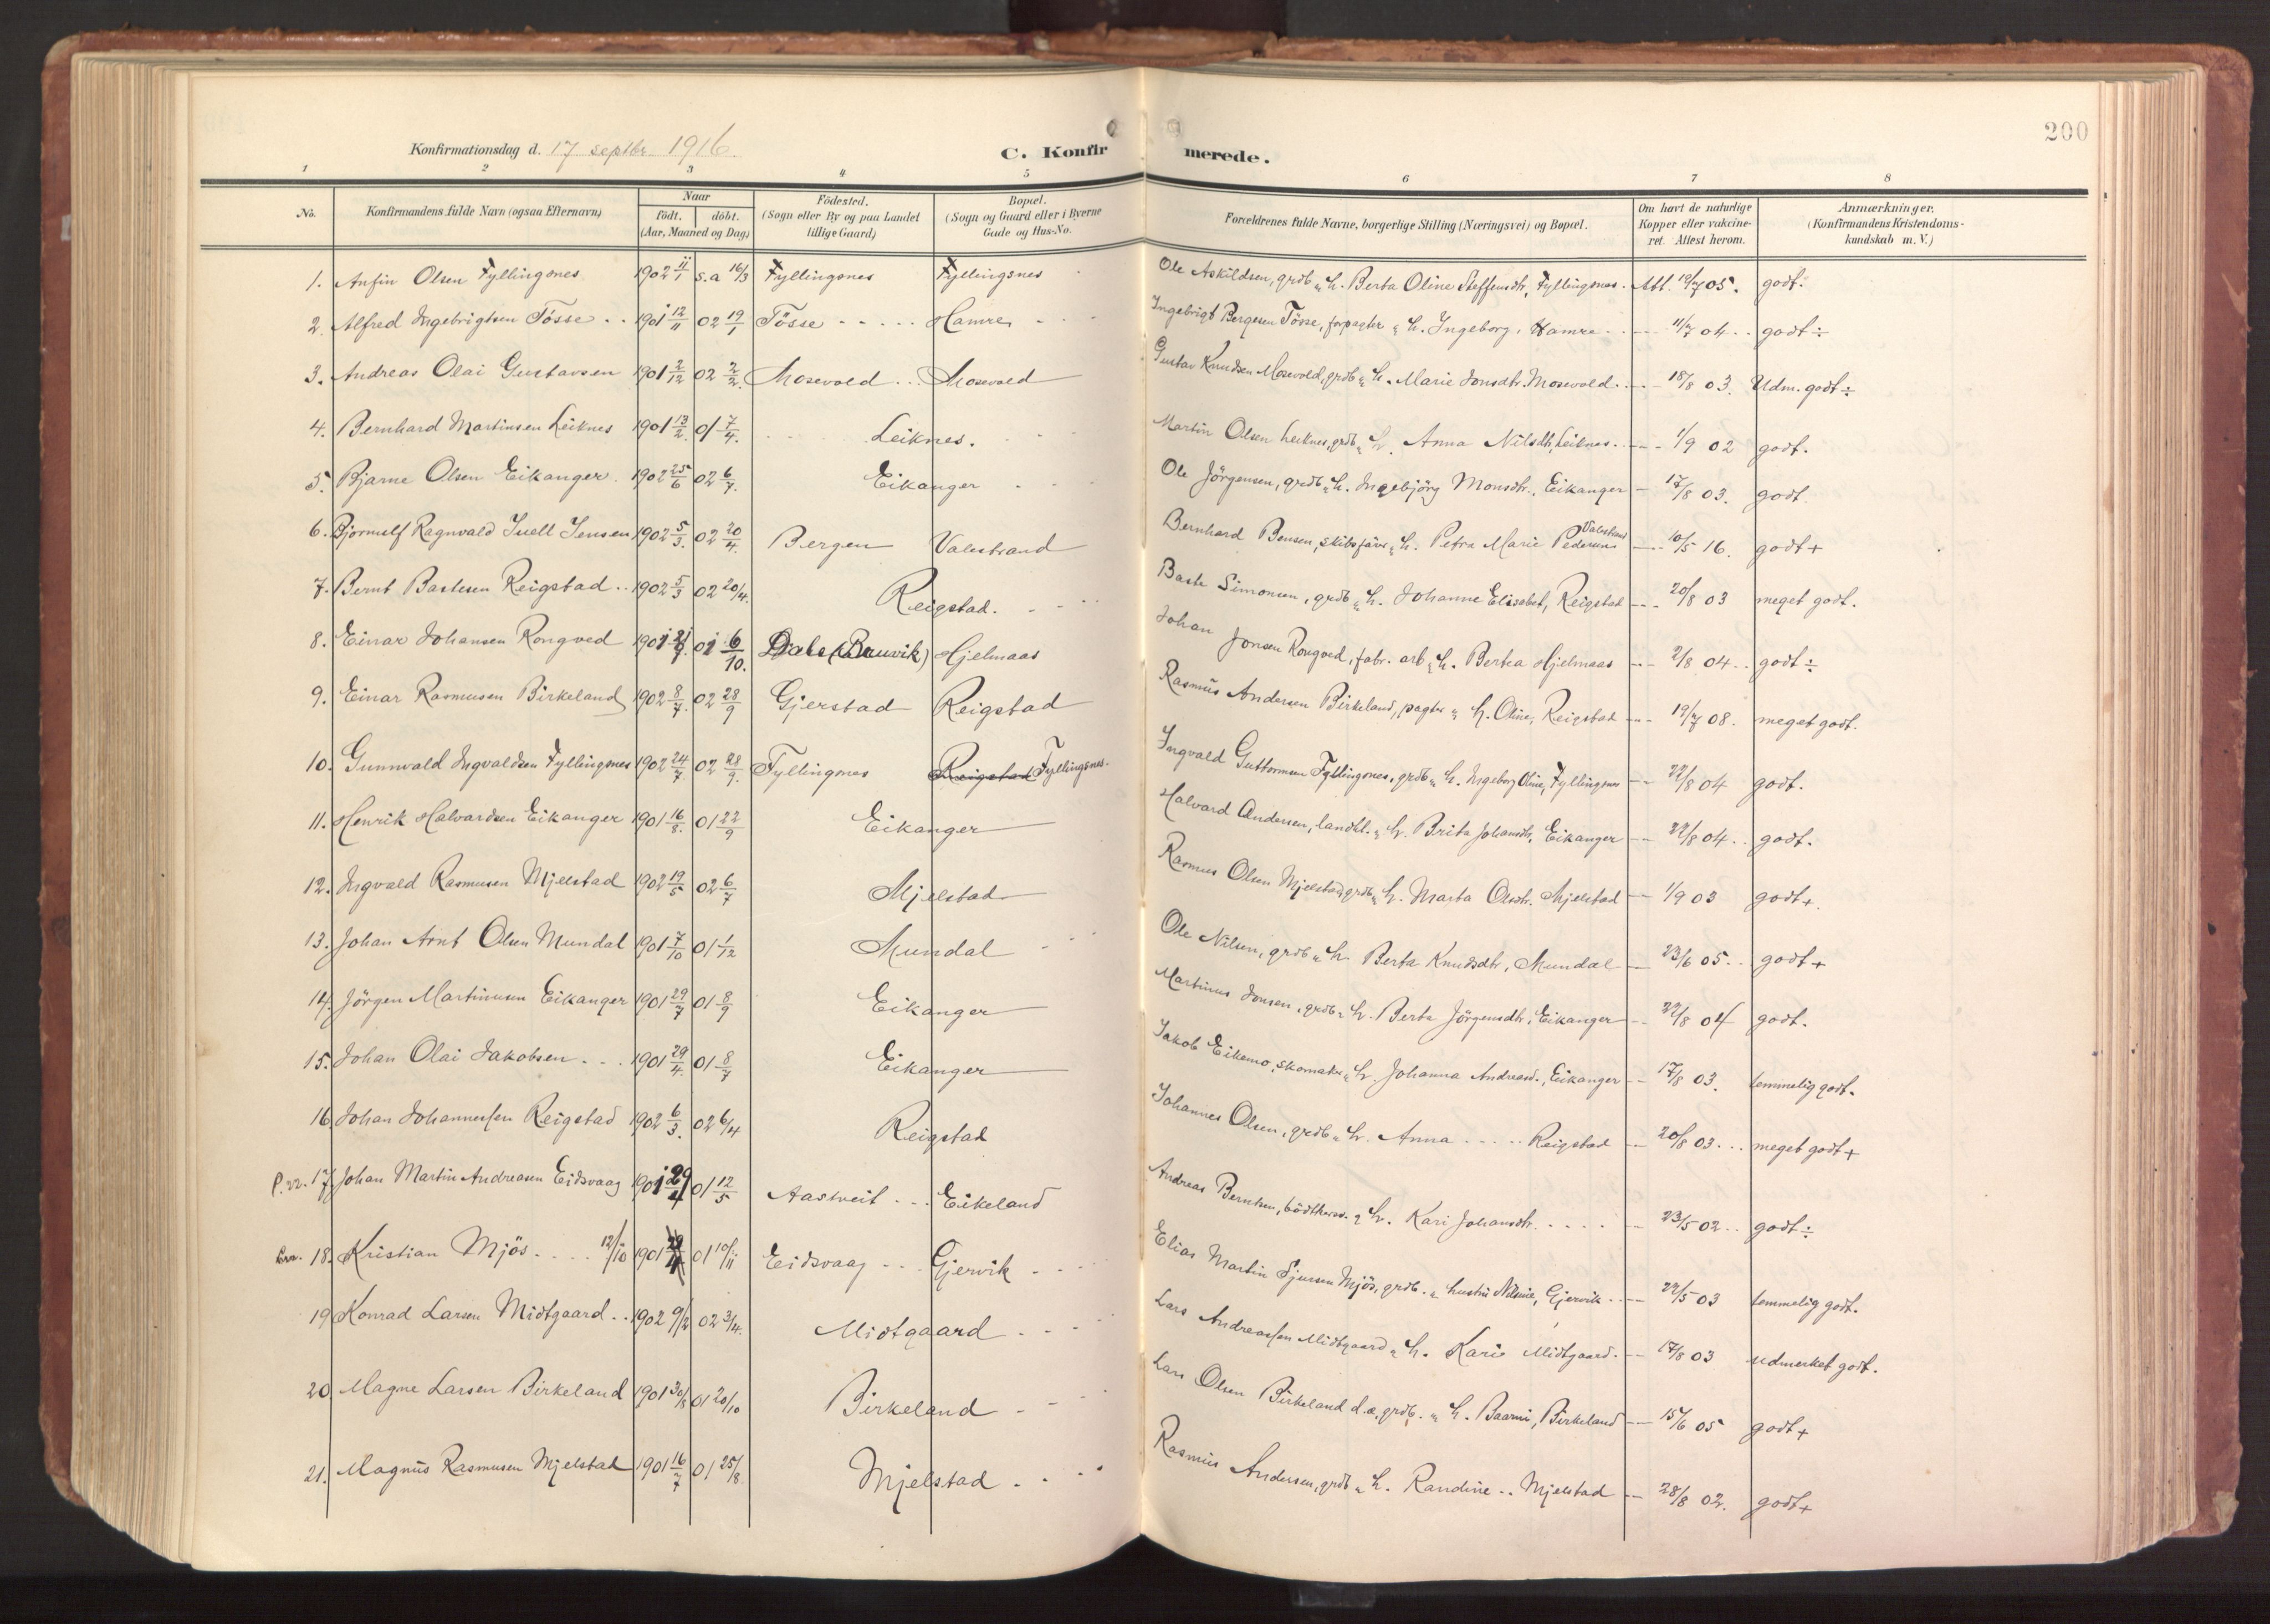 200
Konfirmationsdag d. 17 septbr. 1916.
C. Konfirmerede.
1 2 3 4 5 6 7 8
No.
Konfirmandens fulde Navn (ogsaa Efternavn)
Naar
födt. döbt.
(Aar, Maaned og Dag)
Födested.
(Sogn eller By og paa Landet
tillige Gaard)
Bopæl.
(Sogn og Gaard eller i Byerne
Gade og Hus-No.
Forældrenes fulde Navne, borgerlige Stilling (Næringsvei) og Bopæl.
Om havt de naturlige
Kopper eller vakcine-
ret. Attest herom.
Anmærkninger.
(Konfirmandens Kristendoms-
kundskab m. V.)
1. Anfin Olsen Fyllingsnes 1902 11/1 s.a 16/3 Fyllingsnes Fyllingsnes Ole Askildsen, grdb & h. Berta Oline Steffensdtr, Fyllingsnes. Att. 19/7 05. godt.
2. Alfred Ingebrigtsen Tösse 1901 12/11 02 19/1 Tösse Hamre Ingebrigt Bergesen Tösse, forpagter & h. Ingeborg, Hamre 11/7 04 godt ÷
3. Andreas Olai Gustavsen 1901 2/12 02 2/2. Mosevold Mosevold Gustav Knudsen Mosevold, grdb & h. Marie Jonsdtr. Mosevold. 18/8 03. Udm. godt ÷
4. Bernhard Martinsen Leiknes 1901 13/2. 01 7/4. Leiknes. Martin Olsen Leiknes, grdb & h. Anna Nilsdtr, Leiknes. 1/9 02 godt.
5. Bjarne Olsen Eikanger. 1902 25/6 02 6/7. Eikanger Ole Jörgensen, grdb & h. Ingebjörg Monsdtr., Eikanger 17/8 03. godt.
6. Bjornulf Ragnvald Juell Jensen 1902 5/3. 02 20/4. Bergen Valestrand Bernhard Bensen, skibsförer & h. Petra Marie Pedersens Valestrand 10/5 16. godt +
7. Bernt Bastesen Reigstad 1902 5/3 02 20/4. Reigstad. Baste Simonsen, grdb & h. Johanne Elisabet, Reigstad 20/8 03 meget godt.
8. Einar Johansen Rongved 1901 01 6/10. Dale (Bruvik) Hjelmaas Johan Jonsen Rongved, fabr. arb & h. Bertha Hjelmaas 2/8 04 godt ÷
9. Einar Rasmusen Birkeland 1902 8/7. 02 28/9 Gjerstad Reigstad Rasmus Andersen Birkeland, pagter & h. Oline, Reigstad 19/7 08. meget godt.
10. Gunnvald Ingvaldsen Fyllingsnes 1902 24/7 02 28/9. Fyllingsnes Reigstad Fyllingsnes. Ingvald Guttormsen Fyllingsnes, grdb & h. Ingeborg Oline, Fyllingsnes 22/8 04 godt.
11. Henrik Halvardsen Eikanger 1901 16/8. 01 22/9 Eikanger Halvard Andersen, landhl. & h. Brita Johansdtr, Eikanger 22/8 04 godt.
12. Ingvald Rasmusen Mjelstad 1902 19/5 02 6/7 Mjelstad Rasmus Olsen Mjelstad, grdb & h. Marta Olsdtr. Mjelstad 1/9 03 godt +
13. Johan Arnt Olsen Mundal 1901 7/10 01 1/12 Mundal Ole Nilsen, grdb & h. Berta Knudsdtr, Mundal 23/6 05 godt +
14. Jörgen Martinusen Eikanger 1901 29/7 01 8/9 Eikanger Martinus Jonsen, grdb & h. Berta Jörgensdtr, Eikanger 22/8 04 godt.
15. Johan Olai Jakobsen 1901 29/4. 01 8/7 Eikanger Jakob Eikemo, skomaker & h. Johanna Andreasd., Eikanger 17/8 03. temmelig godt.
16. Johan Johannessen Reigstad 1902 6/3. 02 6/4 Reigstad Johannes Olsen, grdb & h. Anna Reigstad 20/8 03 meget godt +
P. 22. 17. Johan Martin Andreasen Eidsvaag 1901 29/4 01 12/5 Aastveit Eikeland Andreas Berntsen, bödtkersv. & h. Kari Johansdtr. 23/5 02 godt ÷
18. Kristian Mjös 12/10 1901 01 10/11 Eidsvaag Gjervik Elias Martin Sjursen Mjös, grdb. & hustru Nilsine, Gjervik 22/5 03 temmelig godt.
19. Konrad Larsen Midtgaard 1902 9/2 02 3/4. Midtgaard Lars Andreassen Midtgaard & h. Kari Midtgaard. 17/8 03 udmerket godt.
20. Magne Larsen Birkeland 1901 30/8 01 20/10 Birkeland Lars Olsen Birkeland d.æ, grdb. & h. Baarni, Birkeland 15/6 05 godt +
21. Magnus Rasmusen Mjelstad 1901 16/7 01 25/8. Mjelstad Rasmus Andersen, grdb & h. Randine Mjelstad 28/8 02. godt +